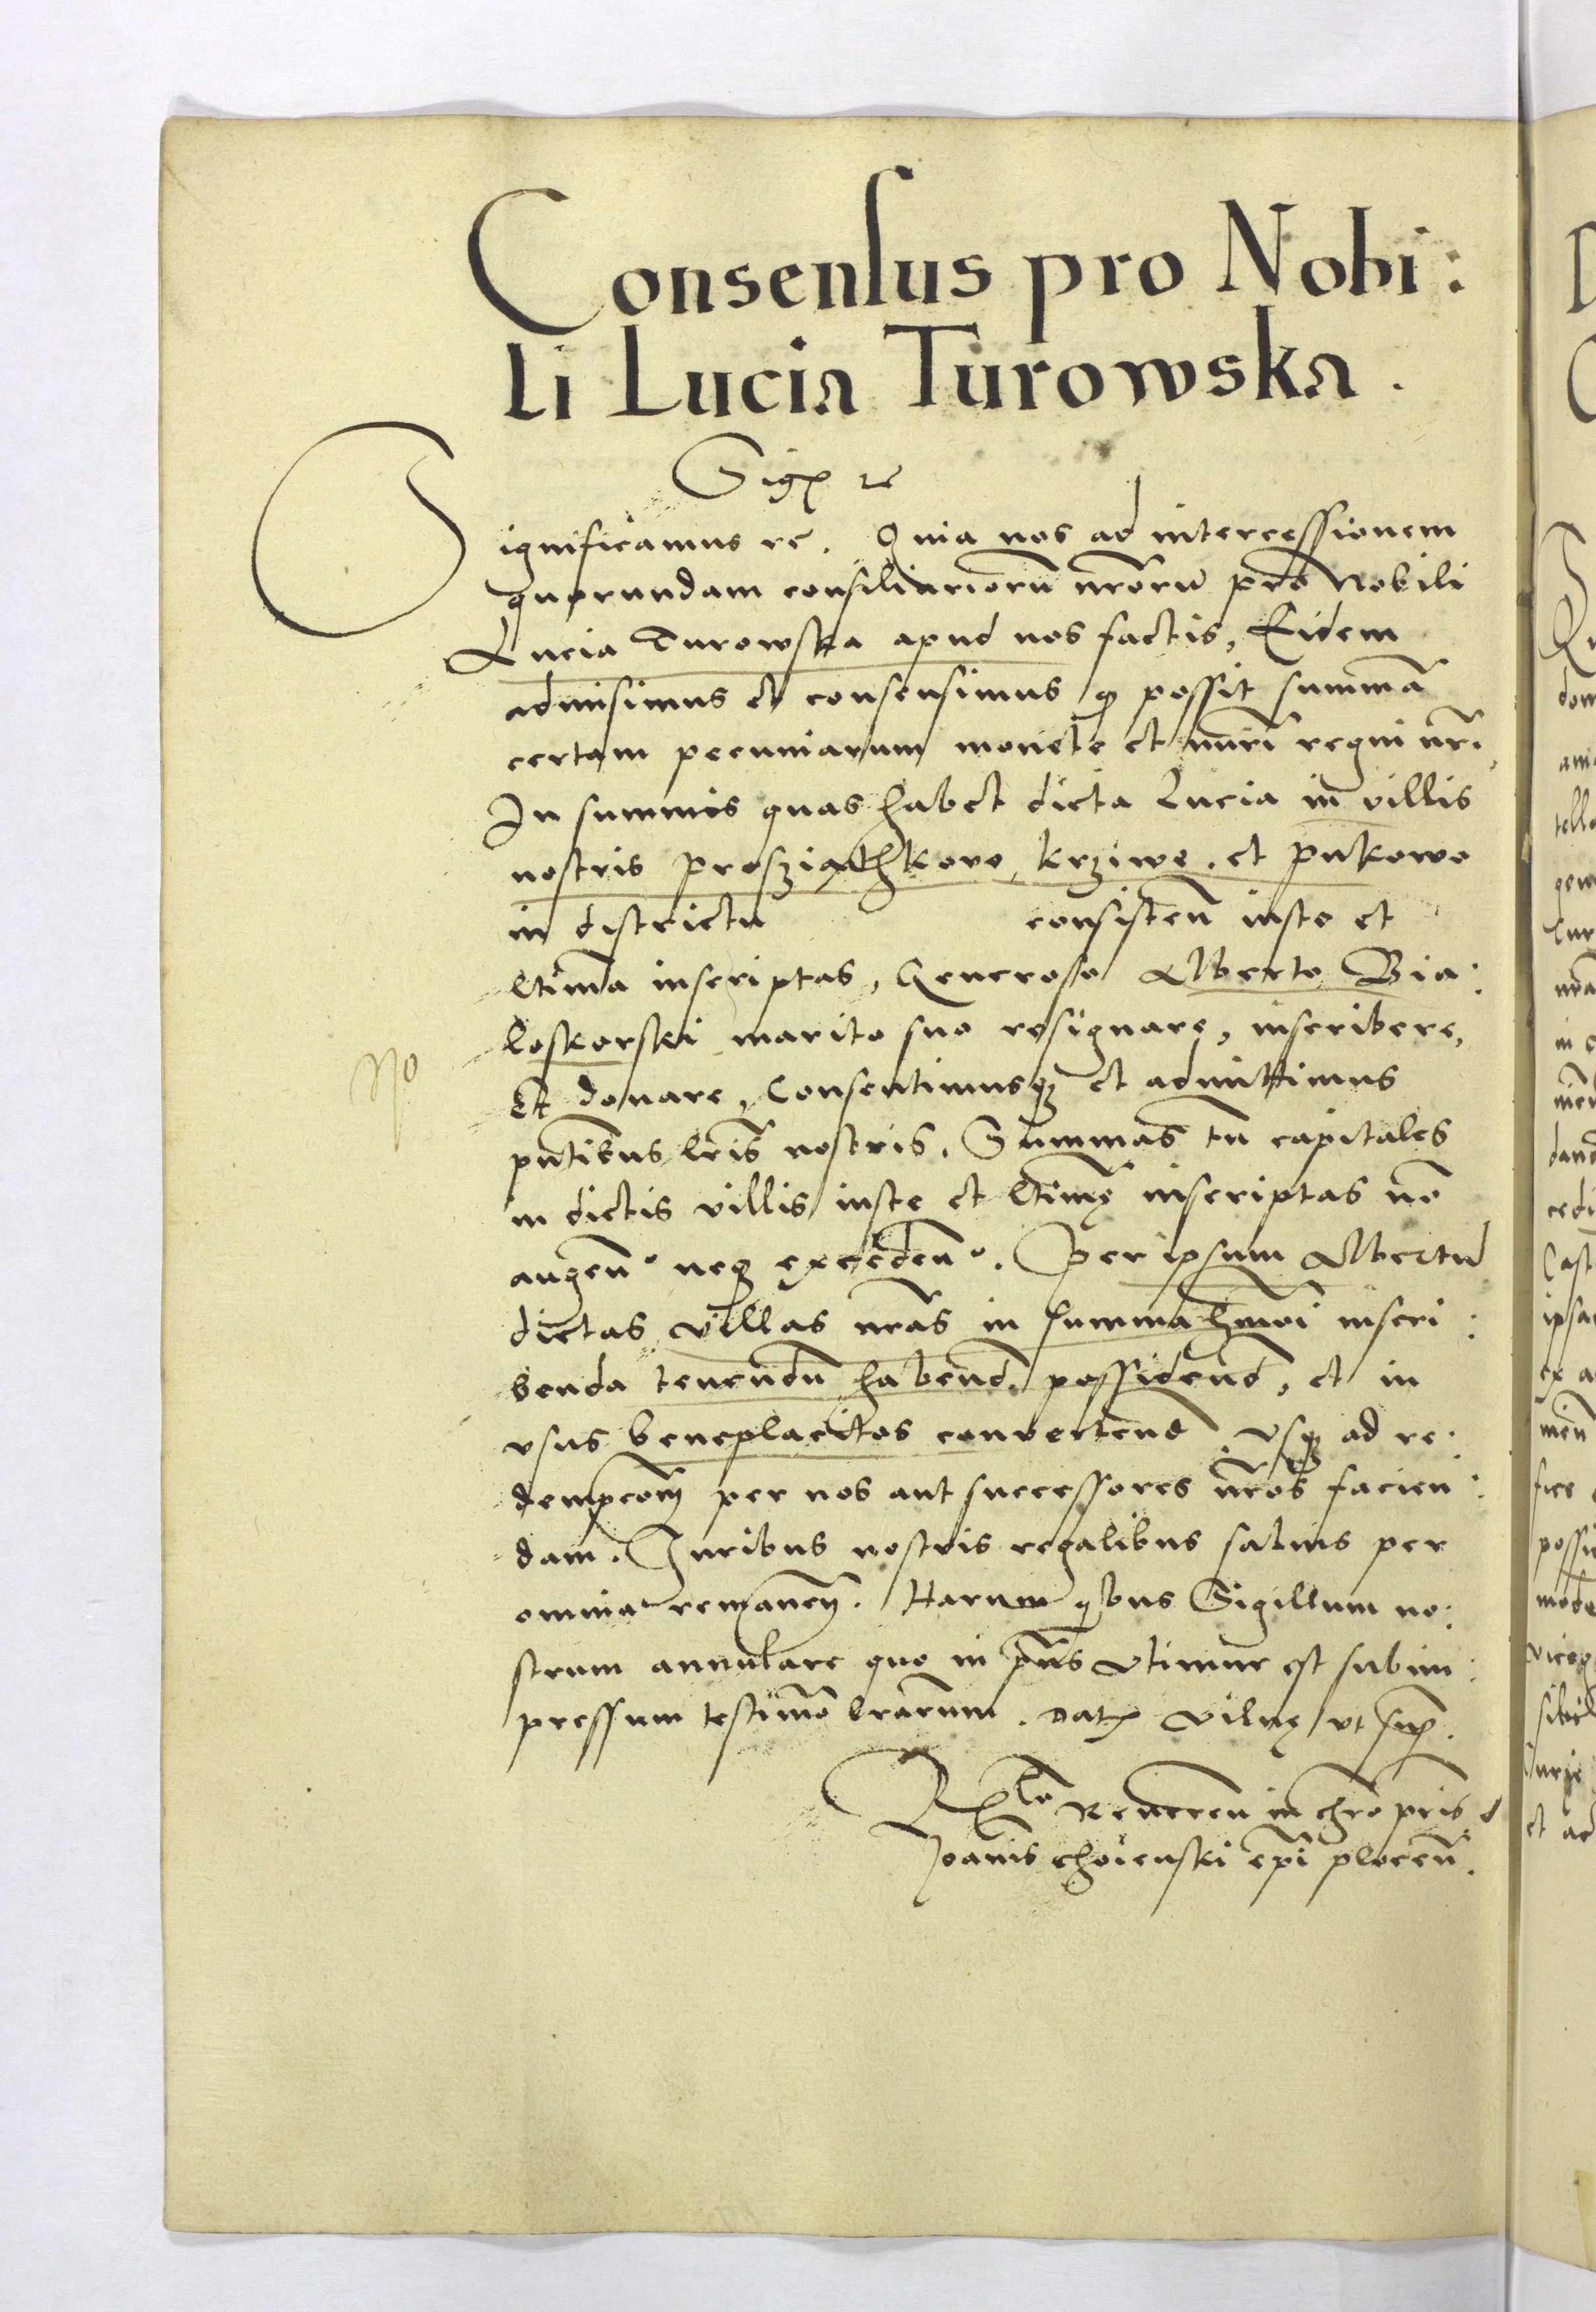 Consensus pro Nobi:
li Lucia Turowska.
Sigis rc
Significamus rc. Quia nos ad intercessionem
quorundam consiliariorū nrōrū pro Nobili
Lucia Turowska apud nos factis, Eidem
admisimus et consensimus q possit summā
certam pecuniarum monete et nūri regni nrī.
In summis quas habet dicta Lucia in villis
nostris Prosziathkovo, krziwe. et pukowo
in districtu consisteñ iuste et
ltime inscriptas, Generoso Alberto Bia:
loskorski marito suo resignare, inscribere,
Et donare, Consentimusq et admittimus
pntibus lris nostris. Summas tn capitales
in dictis villis iuste et ltimę inscriptas nō
augeñ neq excedeñ. Per ipsum Albertū
dictas villas nrās in summa hmōi inscri:
benda tenendū habend. possidend, et in
vsus beneplacitos convertend vsq ad re:
dempcom̄ per nos aut successores nrōs facien:
dam. Juribus nostris regalibus salvis per
omnia remaneñ. Harum qbus Sigillum no:
strum annulare quo in pñs vtimur est subim:
pressum testimō lrārum. Dat Vilnę vt sup.
Rlo Reveren in chrō pris d
Joanis choienski epī ploceñ.
No